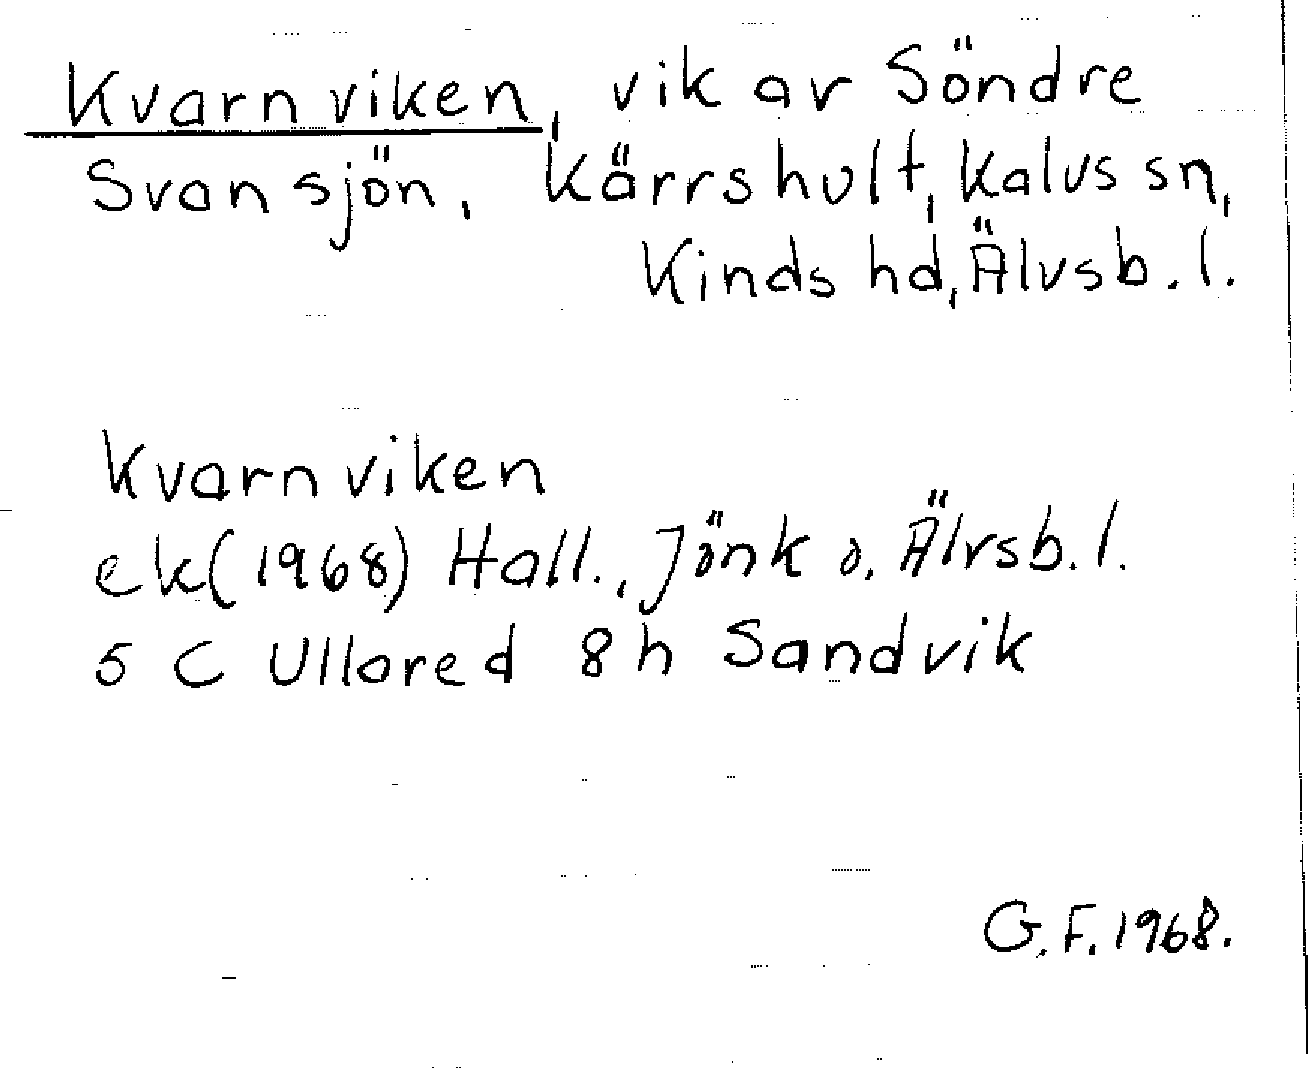 Kvarnviken, vik av Söndre
Svansjön, Kärrshult, Kalvs sn,
Kinds hd, Älvsb. l.
Kvarnviken
ek (1968) Hall., Jönk o. Älvsb. l.
5 C Ullared 8h Sandvik
G.F. 1968.